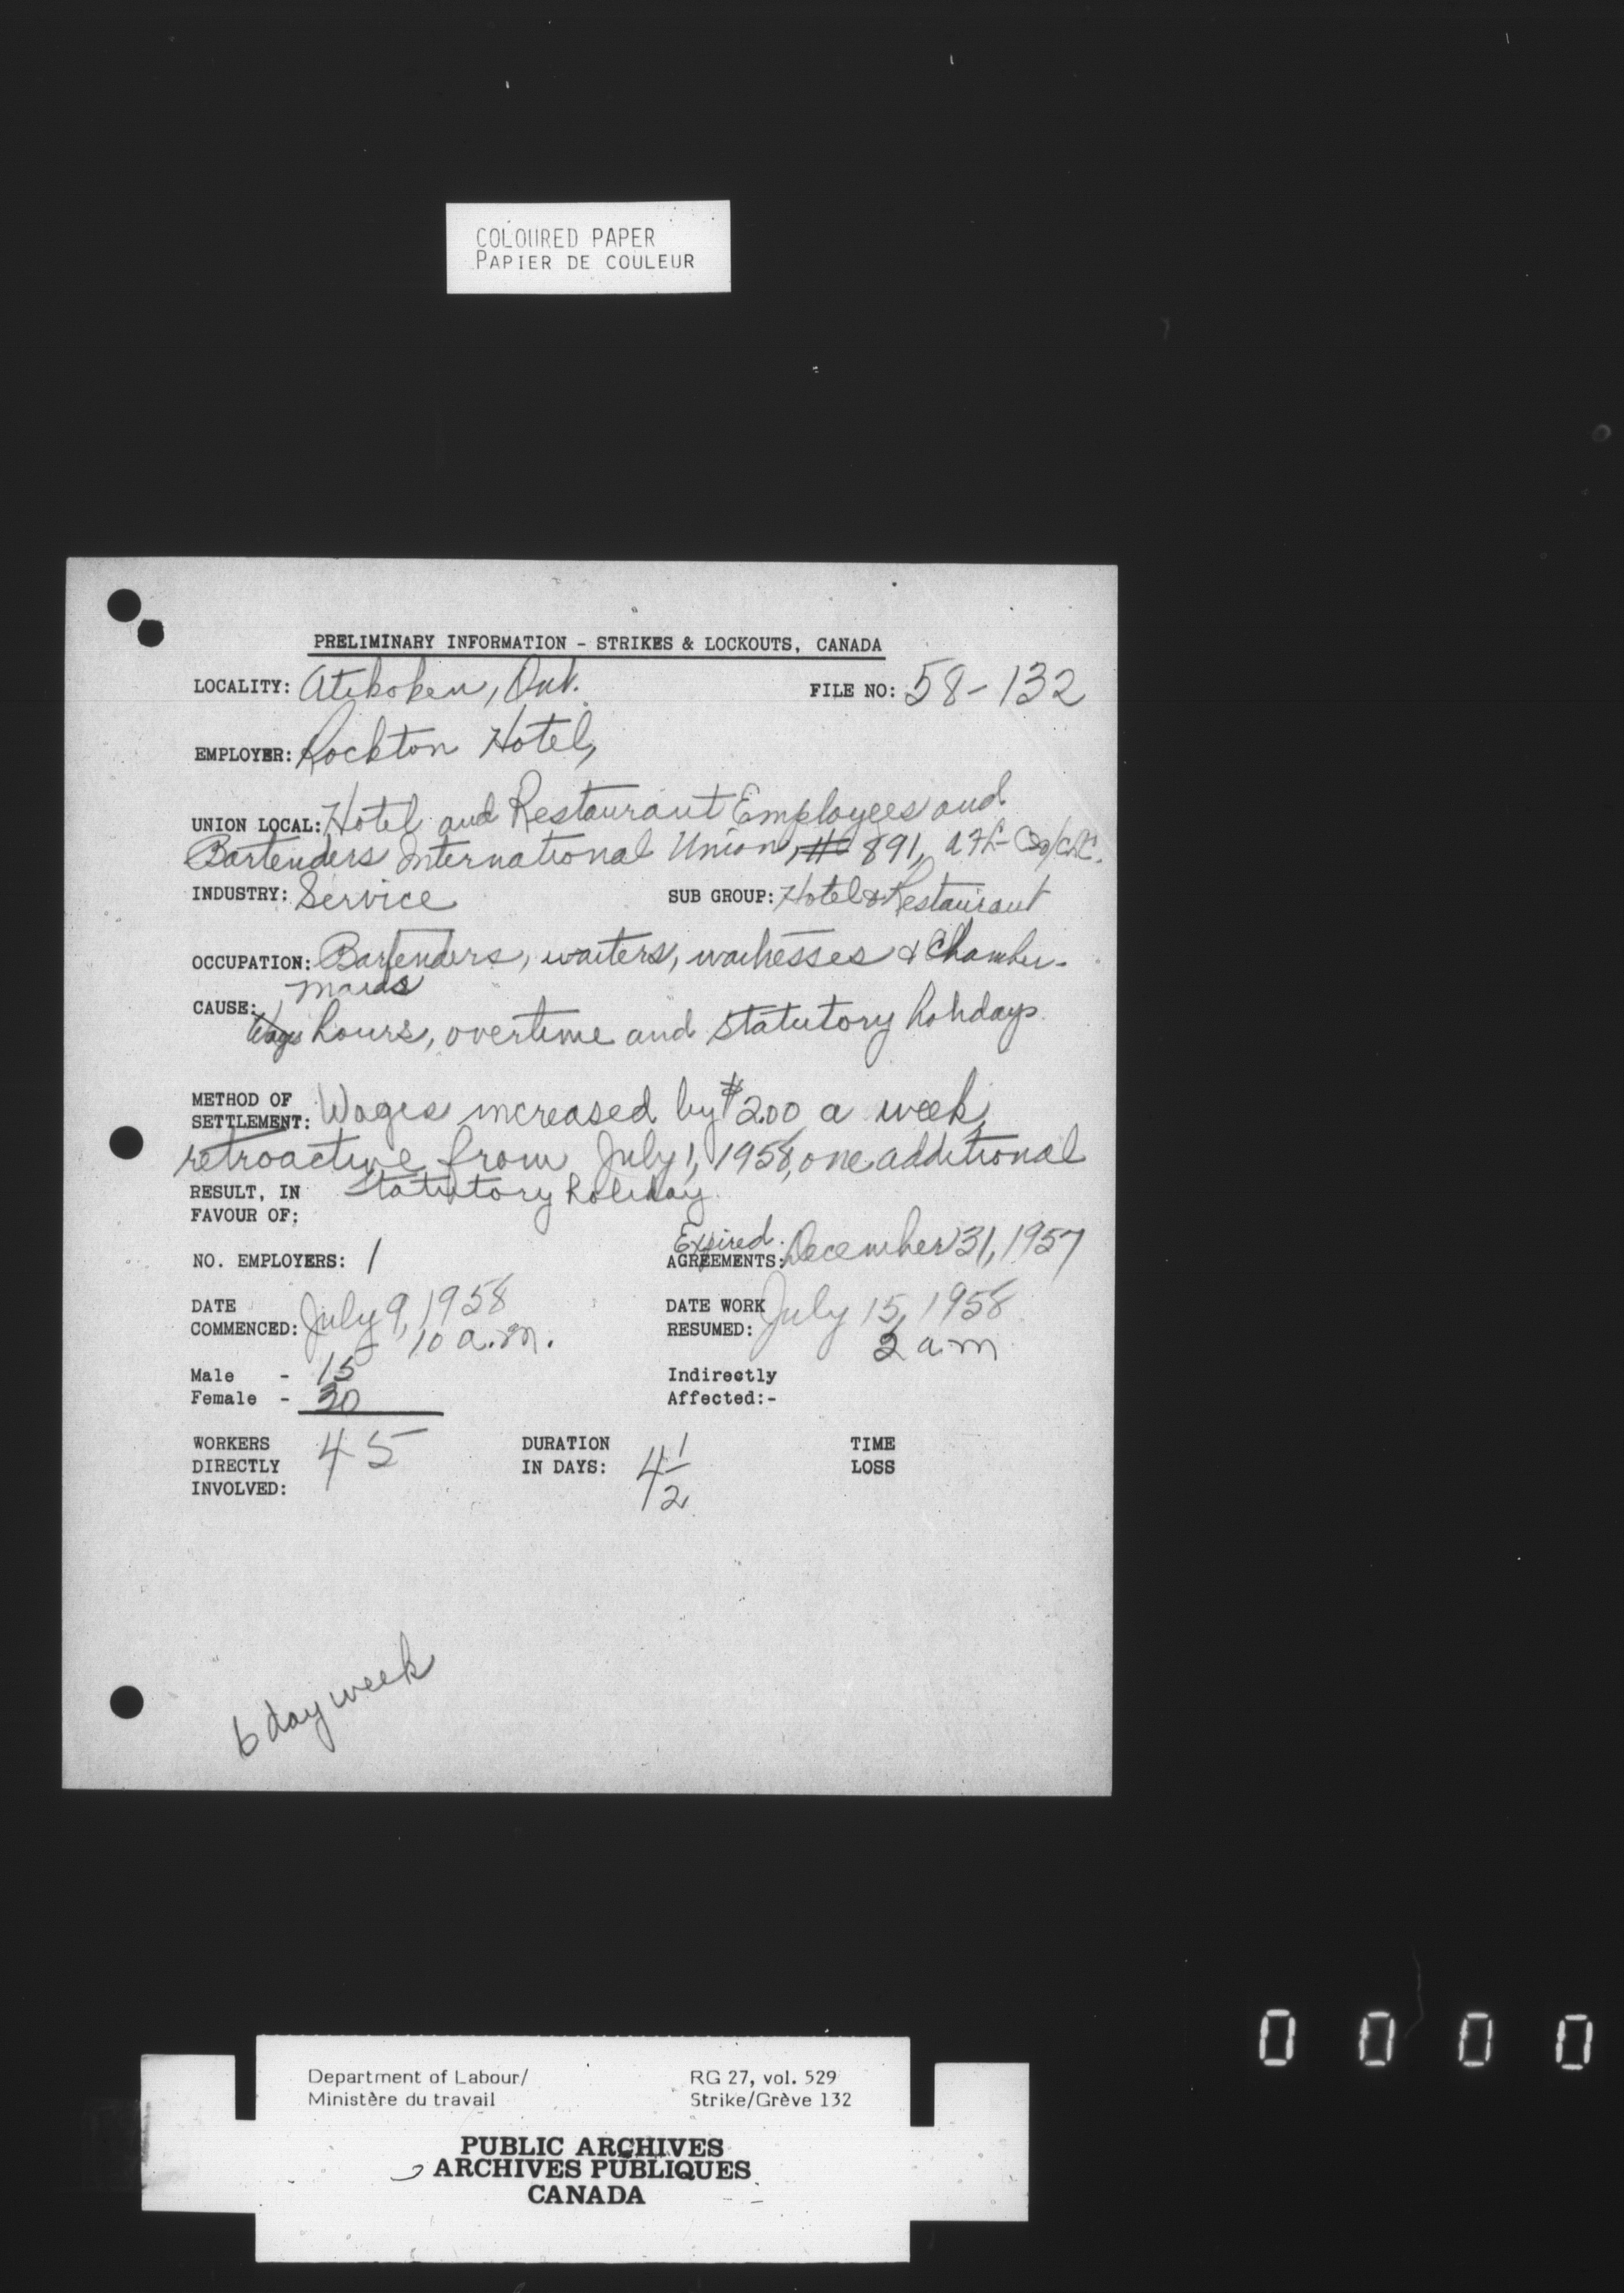 COLOURED PAPER
PAPIER DE COULEUR
PRELIMINARY INFORMATION - STRIKES & LOCKOUTS, CANADA
LOCALITY: Atikoken, Ont. FILE NO: 58-132
EMPLOYER: Rockton Hotel,
UNION LOCAL: Hotel and Restaurant Employees and
Bartenders International Union, # 891, AFL-CIO/CLC.
INDUSTRY: Service SUB GROUP: Hotel & Restaurant
OCCUPATION: Bartenders, waiters, waitresses & Chamber-
maids
CAUSE: Wages hours, overtime and statutory holidays
METHOD OF
SETTLEMENT: Wages increased by $2.00 a week,
retroactive from July 1, 1958, one additional
RESULT, IN statutory holiday.
FAVOUR OF:
NO. EMPLOYERS: 1 Expired AGREEMENTS: December 31, 1957
DATE COMMENCED: July 9, 1958 10 a.m. DATE WORK RESUMED: July 15, 1958 a.m
Male - 15 Indirectly
Female - 30 Affected:-
WORKERS DIRECTLY INVOLVED: 45 DURATION IN DAYS: 4 1/2 TIME LOSS
6 day week
0 0 0 0
Department of Labour/ RG 27, vol. 529
Ministère du travail Strike/Grève 132
PUBLIC ARCHIVES
ARCHIVES PUBLIQUES
CANADA